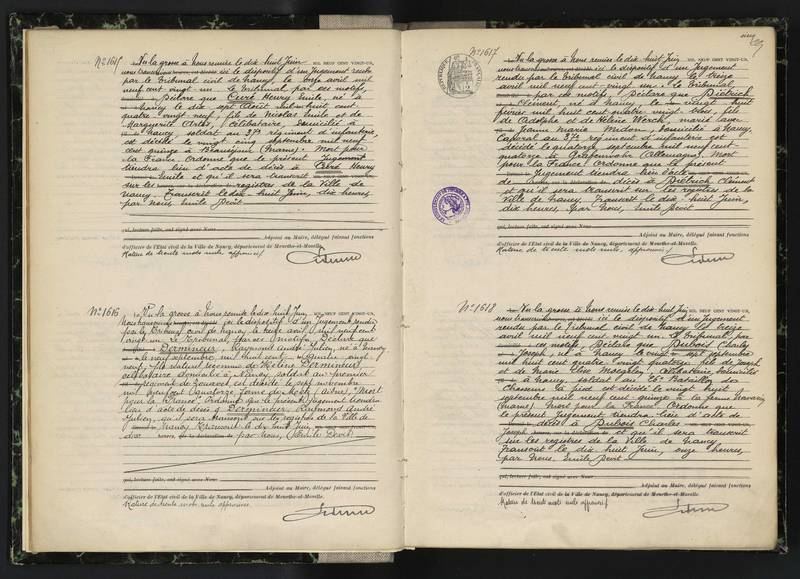 N° 1615 Vu la grosse à Nous remise le dix huit Juin MIL NEUF CENT VINGT-UN,
nous transcrivons ici le dispositif d'un Jugement rendu
par le Tribunal civil de Nancy, le onze avril mil
neuf cent vingt un. Le Tribunal par ces motifs,
Déclare que Ceré Henry Emile, né à
Nancy le dix sept Août mil huit cent
quatre vingt neuf, fils de Nicolas Emile et de
Marguerite célibataire, domicilié à
Nancy soldat au 37e régiment d'infanterie,
est décédé le vingt cinq septembre mil neuf
cent quinze à Beauséjour (Marne). Mort pour
la France. Ordonne que le présent Jugement
tiendra lieu d'acte de décès à Ceré Henry
Emile et qu'il sera transcrit
sur les registres de la Ville de
Nancy. Transcrit le dix huit Juin, dix heures,
par Nous Emile Devit.
qui, lecture faite, ont signé avec Nous
Adjoint au Maire, délégué faisant fonctions
d'officier de l'Etat civil de la Ville de Nancy, département de Meurthe-et-Moselle.
Rature de trente mots nuls approuvés
N° 1616 Vu la grosse à Nous remise le dix huit Juin MIL NEUF CENT VINGT-UN,
Nous transcrivons ici le dispositif d'un Jugement rendu
par le Tribunal civil de Nancy le treize avril mil neuf cent
vingt un. Le Tribunal par ces motifs Déclare que
Dermineur, Raymond André Julien, né à Nancy
le neuf septembre mil huit cent quatre vingt
neuf, fils naturel reconnu de Hélène Dermineur,
célibataire domicilié à Nancy, soldat au premier
régiment de Zouaves est décédé le sept novembre
mil neuf cent quatorze ferme de (Aisne). Mort
pour la France. Ordonne que le présent Jugement tiendra
lieu d'acte de décès à Dermineur, Raymond André
Julien, qu'il sera transcrit sur les registres de la Ville de
Nancy. Transcrit le dix huit Juin,
dix heures, par Nous, Emile Devit
qui, lecture faite, ont signé avec Nous
Adjoint au Maire, délégué faisant fonctions
d'officier de l'Etat civil de la Ville de Nancy, département de Meurthe-et-Moselle.
Rature de trente mots nuls approuvés
N° 1617 Vu la grosse à Nous remise le dix huit Juin MIL NEUF CENT VINGT-UN,
nous transcrivons ici le dispositif d'un Jugement
rendu par le Tribunal civil de Nancy le treize
avril mil neuf cent vingt un. Le Tribunal
par ces motifs, Déclare que Dietrich
Clément, né à Nancy, le vingt huit
février mil huit cent quatre vingt trois, fils
de Adolphe et de Hélène Worch, marié avec
Jeanne Marie domicilié à Nancy,
Caporal au 37e régiment d'infanterie est
décédé le quatorze septembre mil neuf cent
quatorze à Grafenwohr (Allemagne). Mort
pour la France. Ordonne que le présent
Jugement tiendra lieu d'acte
de décès à Dietrich Clément
et qu'il sera transcrit sur les registres de la
Ville de Nancy. Transcrit le dix huit Juin,
dix heures. Par Nous, Emile Devit
qui, lecture faite, ont signé avec Nous
Adjoint au Maire, délégué faisant fonctions
d'officier de l'Etat civil de la Ville de Nancy, département de Meurthe-et-Moselle.
Rature de trente mots nuls, approuvés
N° 1618 Vu la grosse à Nous remise le dix huit Juin MIL NEUF CENT VINGT-UN,
nous transcrivons ici le dispositif d'un Jugement
rendu par le Tribunal civil de Nancy le treize
avril mil neuf cent vingt un. Le Tribunal, par
ces motifs Déclare que Dubois Charles
Joseph, né à Nancy le vingt sept septembre
mil huit cent quatre vingt quatorze, fils de Joseph
et de Marie Elise célibataire, domicilié
à Nancy, soldat au Bataillon de
Chasseurs à pied est décédé le vingt huit
septembre mil neuf cent quinze à la ferme Navarin
(Marne). Mort pour la France. Ordonne que
le présent Jugement tiendra lieu d'acte de
décès à Dubois Charles
Joseph et qu'il sera transcrit
sur les registres de la Ville de Nancy.
Transcrit le dix huit Juin, onze heures,
par Nous, Emile Devit
qui, lecture faite, ont signé avec Nous
Adjoint au Maire, délégué faisant fonctions
d'officier de l'Etat civil de la Ville de Nancy, département de Meurthe-et-Moselle.
Rature de trente mots nuls approuvés